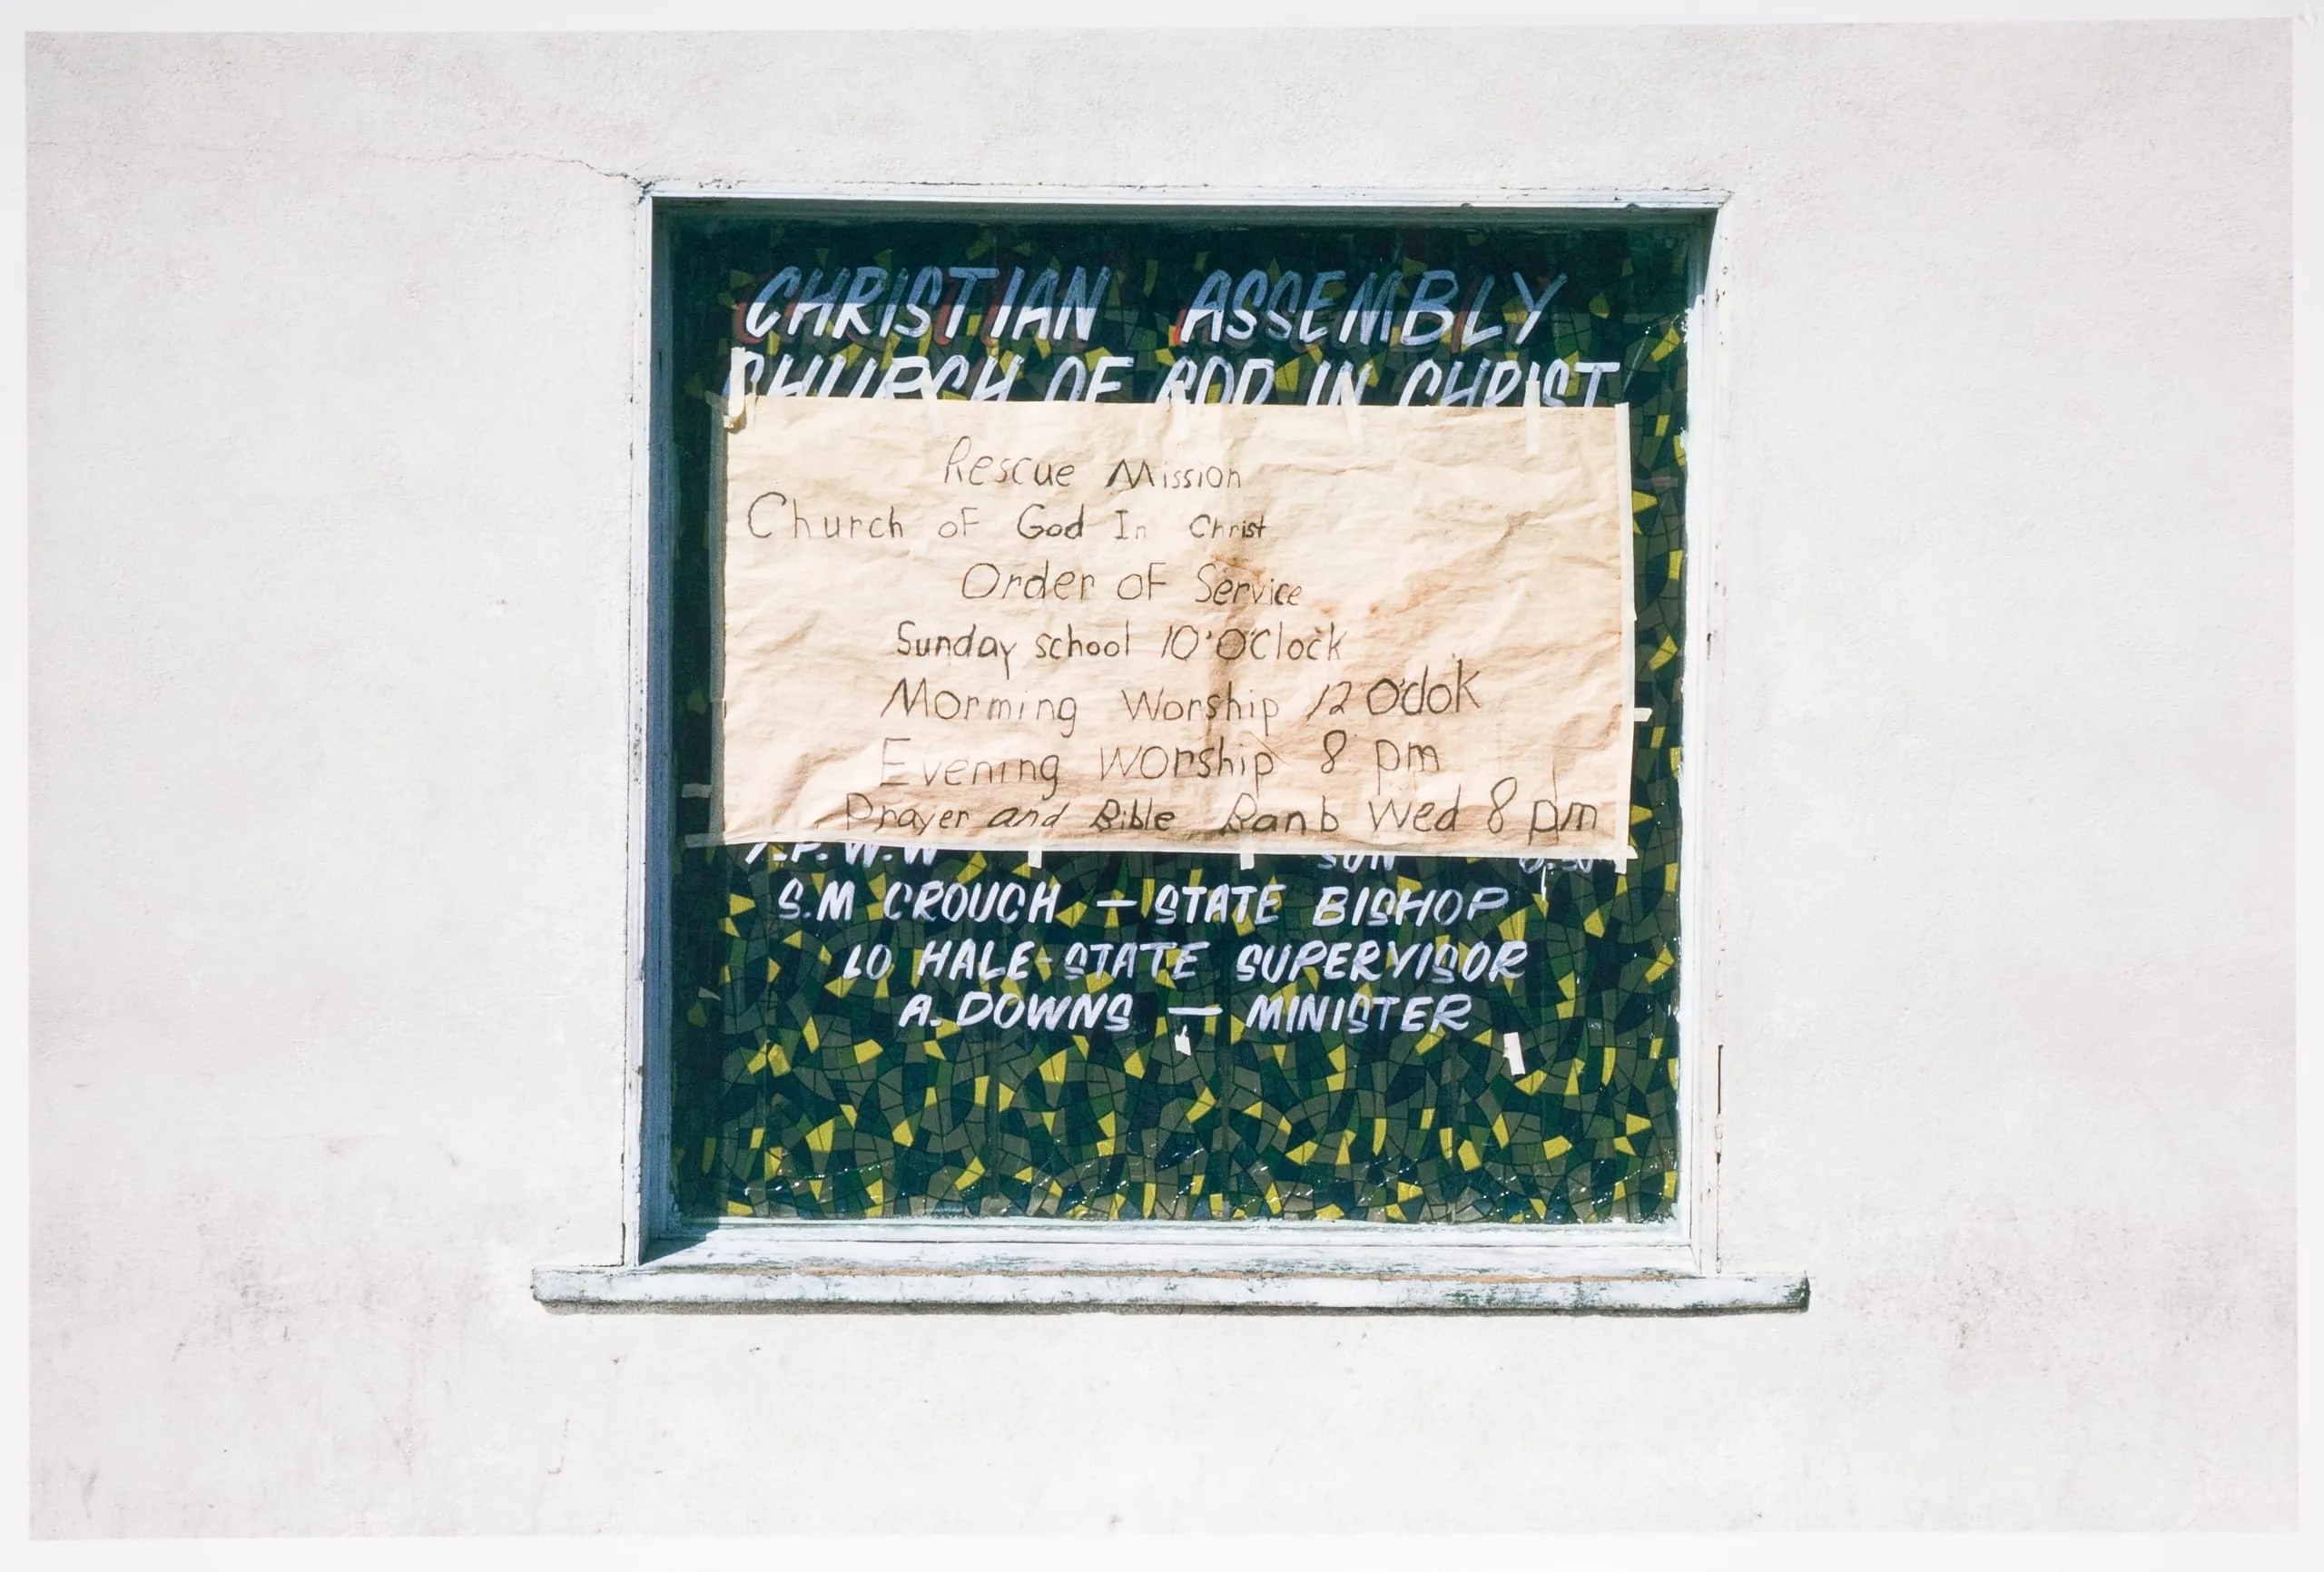 CHRISTIAN ASSEMBLY
CHURCH OF GOD IN CHRIST
Rescue Mission
Church oF God In Christ
Order oF Service
Sunday school 10'O'Clock
Morming Worship 12 O'clok
Evening Worship 8 pm
Prayer and Bible Banb Wed 8 pm
Y.P.W.W SUN
S.M CROUCH — STATE BISHOP
LO HALE-STATE SUPERVISOR
A. DOWNS — MINISTER